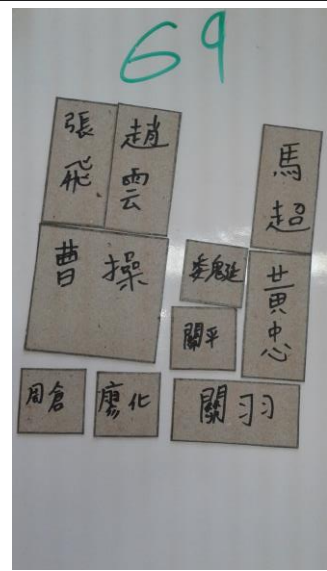 69
張飛
趙雲
馬超
曹操
魏延
黃忠
關平
周倉
廖化
關羽